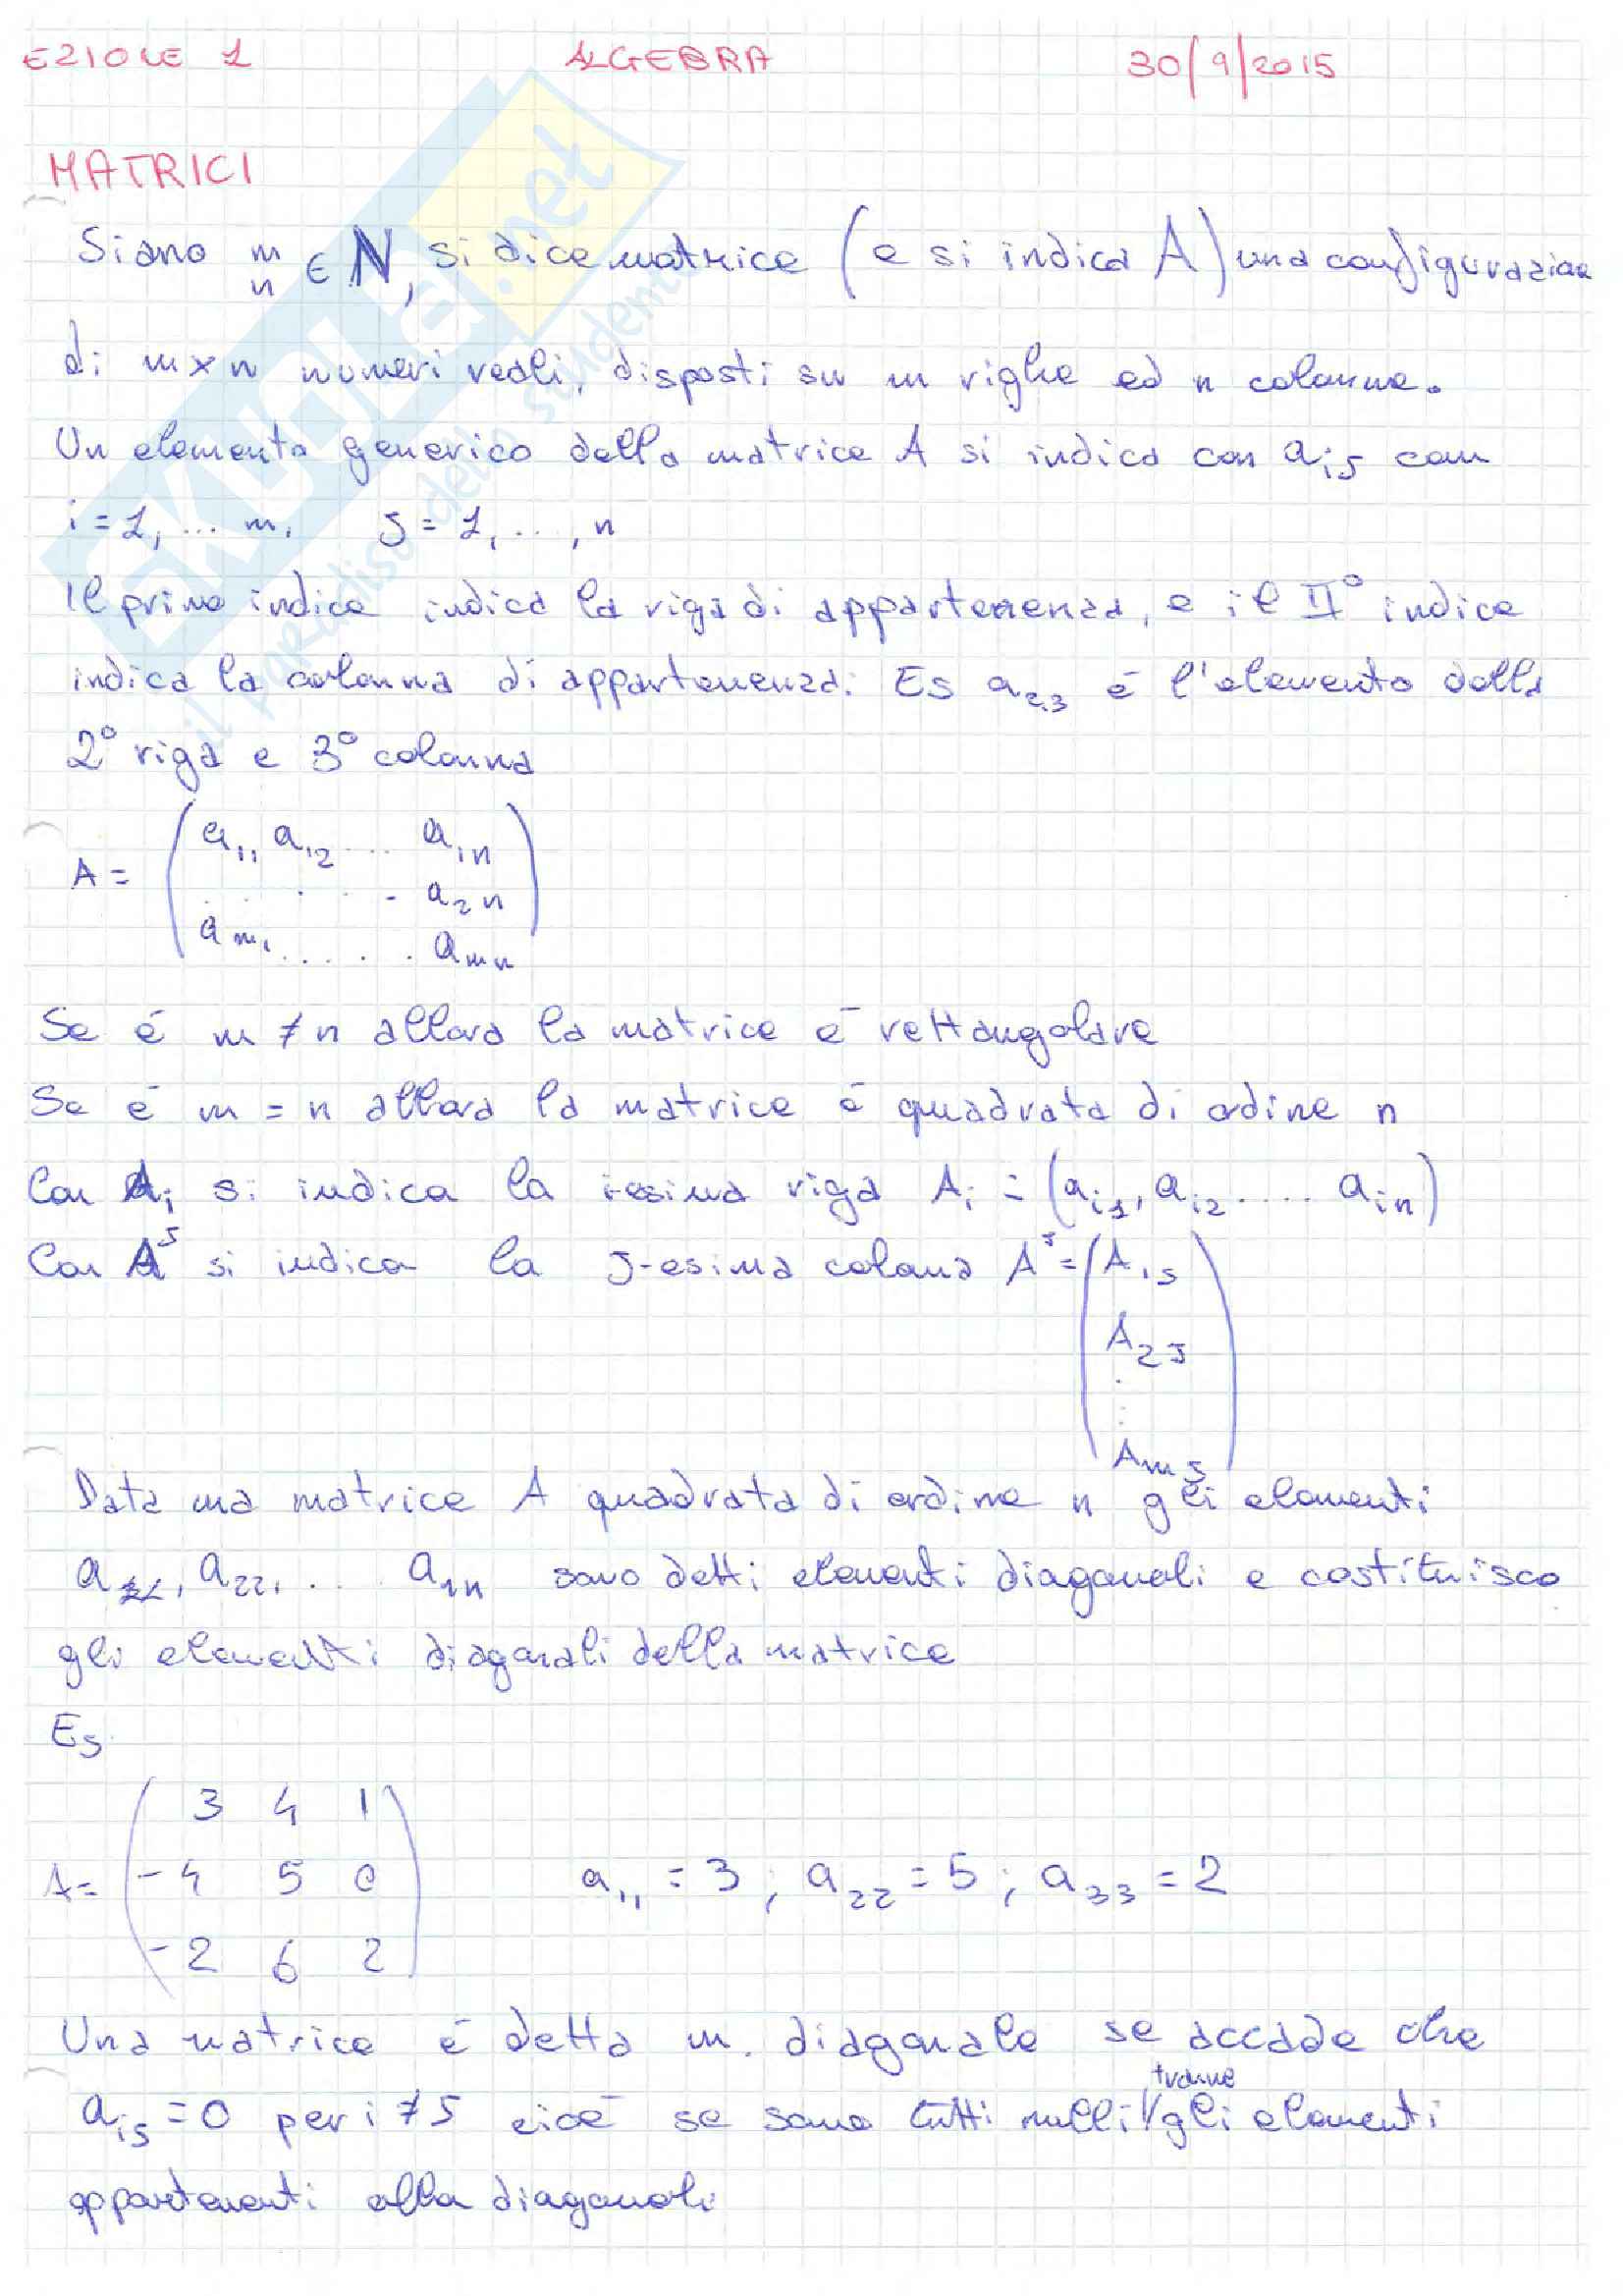 EZIONE 1 ALGEBRA 30/9/2015
MATRICI
Siano m n ∈ N, si dice matrice (e si indica A) una configurazione
di m×n numeri reali, disposti su m righe ed n colonne.
Un elemento generico della matrice A si indica con aij con
i=1,... m, j=1,...,n
Il primo indice indica la riga di appartenenza, e il II° indice
indica la colonna di appartenenza. Es a23 è l'elemento della
2° riga e 3° colonna
A = ( a11 a12 ... a1n
. . . . a2n
am1 . . . . . amn )
Se è m ≠ n allora la matrice è rettangolare
Se è m = n allora la matrice è quadrata di ordine n
Con Ai si indica la i-esima riga Ai = (ai1, ai2 .... ain)
Con A^J si indica la J-esima colonna A^J = ( A1J
A2J
.
:
AmJ )
Data una matrice A quadrata di ordine n gli elementi
a11, a22, ... ann sono detti elementi diagonali e costituisco
gli elementi diagonali della matrice
Es.
A= ( 3 4 1
-4 5 0
-2 6 2 ) a11 = 3 ; a22 = 5 ; a33 = 2
Una matrice è detta m. diagonale se accade che
aij = 0 per i ≠ J cioè se sono tutti nulli tranne gli elementi
appartenenti alla diagonale
SKUOLA.net
il paradiso dello studente